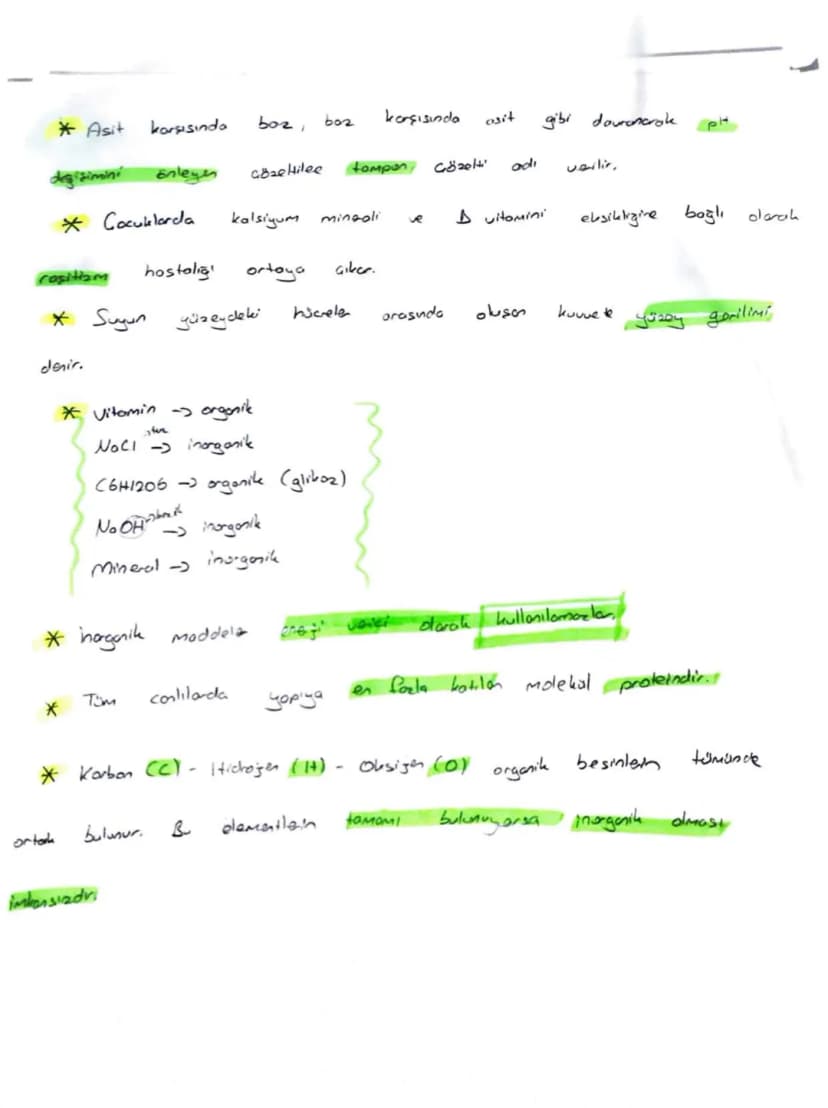 * Asit karşısında baz, baz karşısında asit gibi davranarak pH
değişimini önleyen çözeltilee tampon, çözelti adı verilir.
* Çocuklarda kalsiyum minerali ve D vitamini eksikliğine bağlı olarak
raşitizm hastalığı ortaya çıkar.
* Suyun yüzeydeki hücreler arasında oluşan kuvvete yüzey gerilimi
denir.
* Vitamin -> organik
NaCl -> inorganik
C6H12O6 -> organik (glikoz)
NaOH -> inorganik
Mineral -> inorganik
* inorganik maddeler enerji verici olarak kullanılamazlar.
* Tüm canlılarda yapıya en fazla katılan molekül proteindir.
* Karbon (C) - Hidrojen (H) - Oksijen (O) organik besinlerin tümünde
ortak bulunur. Bu elementlerin tamamı bulunuyorsa inorganik olması
imkansızdır.